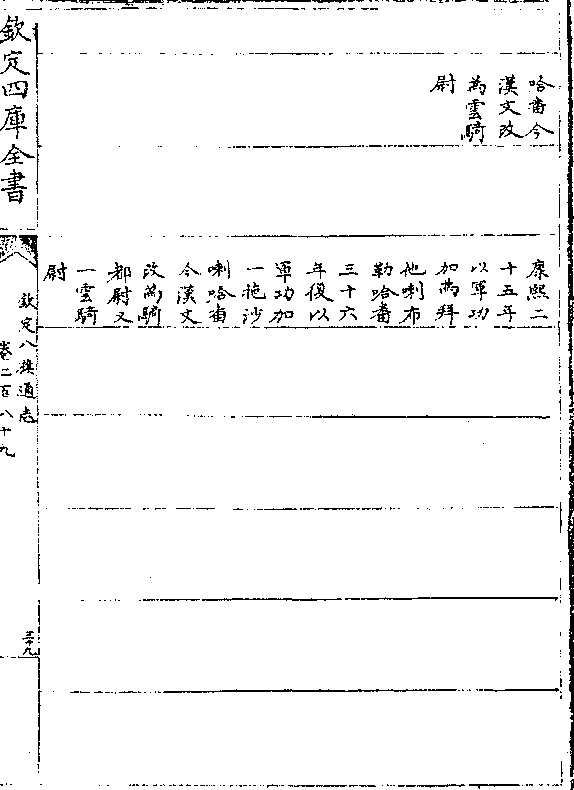 哈番今
漢文改
為雲騎
尉
康熙二
十五年
以軍功
加為拜
他喇布
勒哈番
三十六
年復以
軍功加
一拖沙
喇哈番
今漢文
改為騎
都尉又
一雲騎
尉
欽定四庫全書
欽定八旗通志
卷二百八十九
三十九